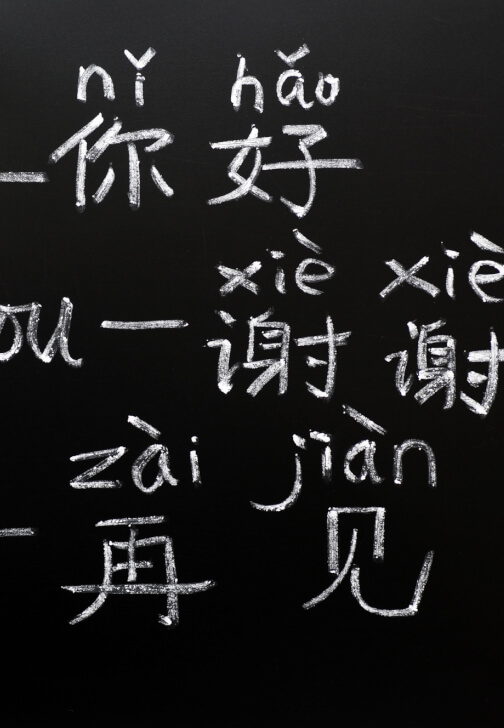 nǐ hǎo
— 你 好
xiè xiè
ou — 谢 谢
zài jiàn
— 再 见